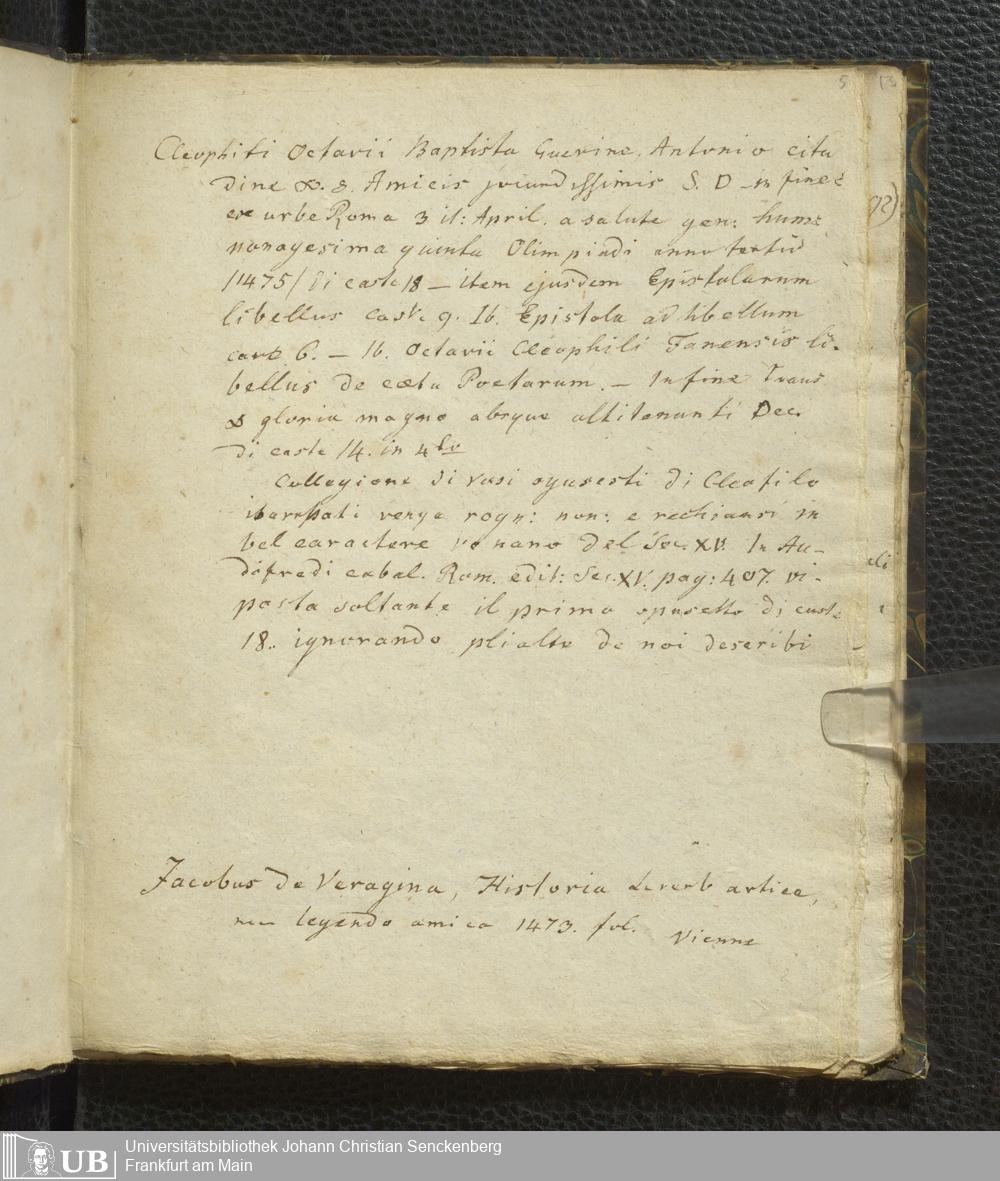 5 13
Cleophiti Octavii Baptista Guerine, Antonio cita
dine &. &. Amicis jocundissimis S. D – in fine:
ex urbe Roma 3 it: April. a salute gen: hum:
nonagesima quinta Olimpiadi anno tertio
/1475/ di carte 18 – item ejusdem Epistolarum
libellus cart. 9. Ib. Epistola ad libellum
cart. 6. – Ib. Octavii Cleophili Fanensis li-
bellus de cœtu Poetarum. – In fine Traus
& gloria magno absque altitonanti Deo.
di carte 14. in 4to
Collegione di vasi opusesti di Cleofilo
venga rogn: non: e rechiansi in
bel caractere romano del Sec. XV. In Au-
difredi catal. Rom. edit: Sec. XV. pag: 407. vi-
posta soltante il primo opusetto di cart:
18. ignorando plialtre de noi describi
Jacobus de Veragina, Historia
legendo amica 1473. fol.
Vienne
92)
Universitätsbibliothek Johann Christian Senckenberg
Frankfurt am Main
UB